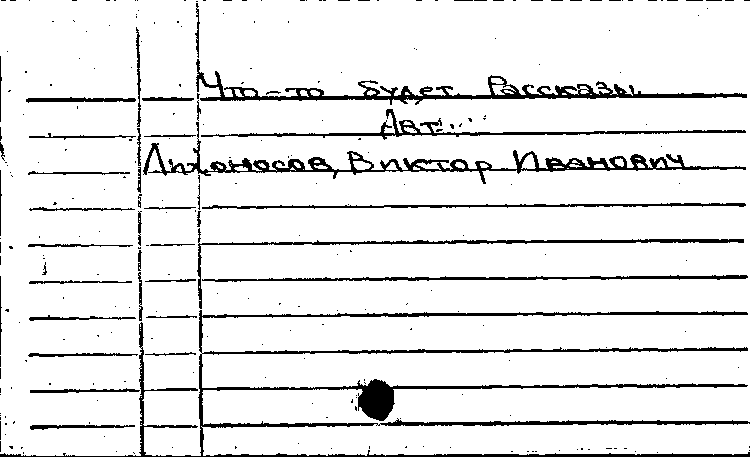 Что-то будет Рассказы.
Авт:
Лихоносов, Виктор Иванович